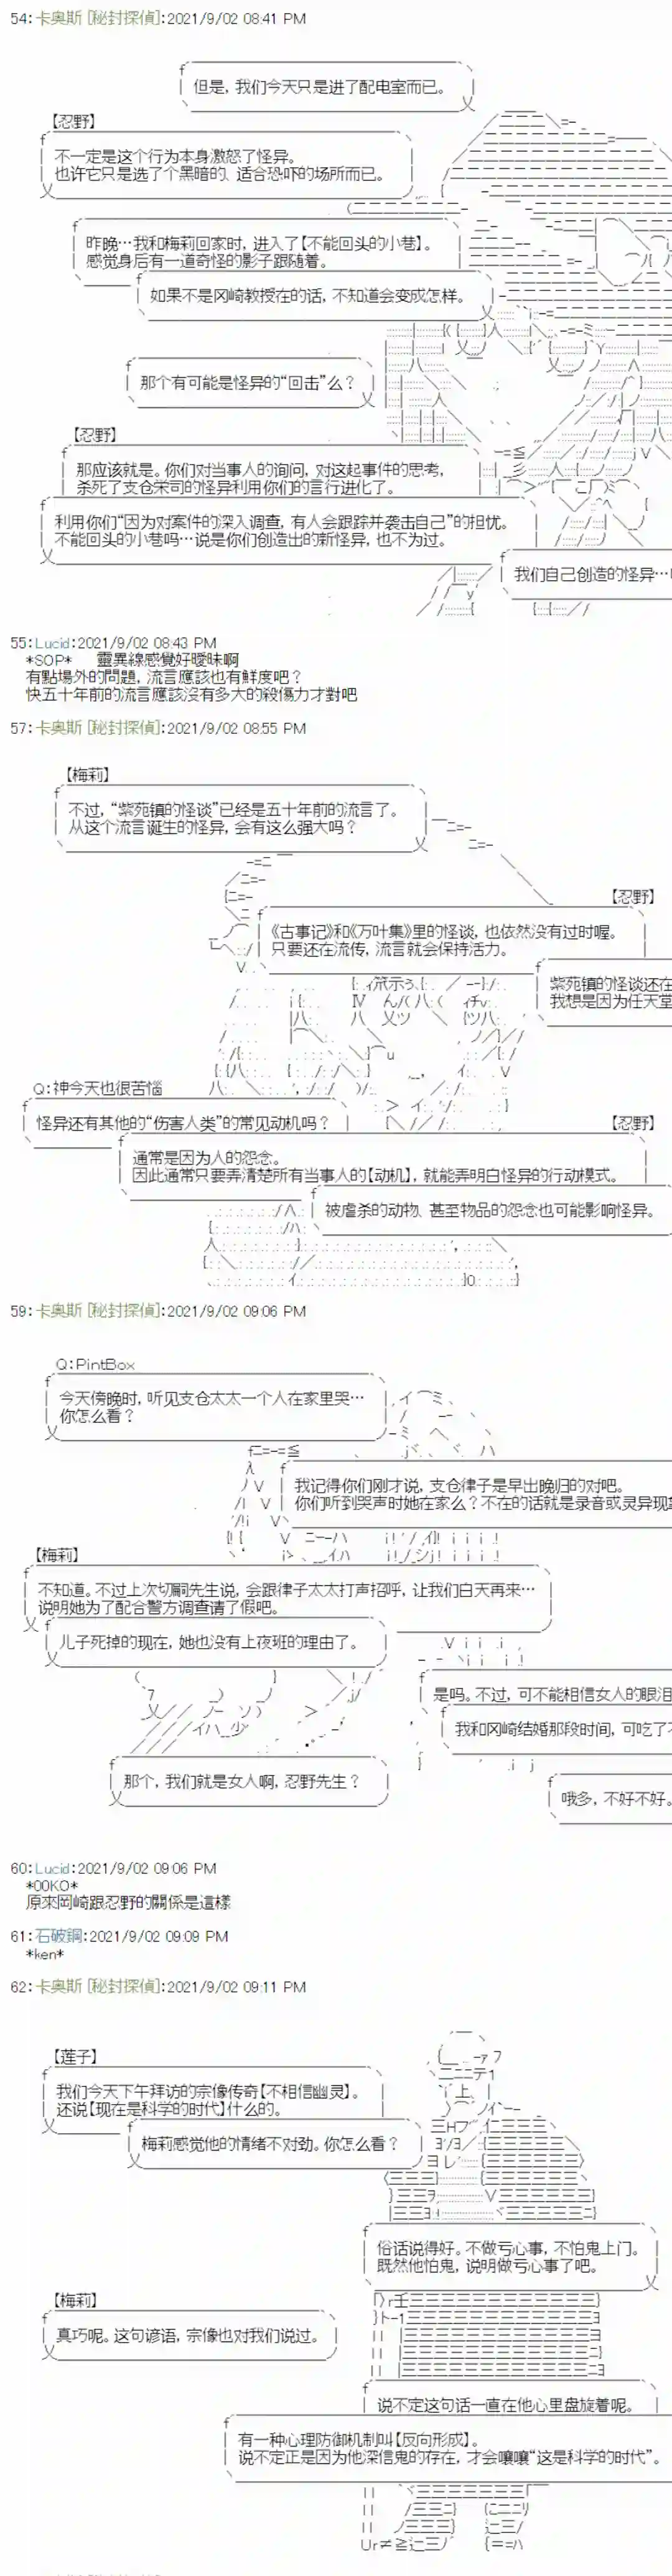 54：卡奥斯 [秘封探偵]：2021/9/02 08:41 PM
但是，我们今天只是进了配电室而已。
【忍野】
不一定是这个行为本身激怒了怪异。
也许它只是选了个黑暗的、适合恐吓的场所而已。
昨晚…我和梅莉回家时，进入了【不能回头的小巷】。
感觉身后有一道奇怪的影子跟随着。
如果不是冈崎教授在的话，不知道会变成怎样。
那个有可能是怪异的“回击”么？
【忍野】
那应该就是。你们对当事人的询问，对这起事件的思考，
杀死了支仓荣司的怪异利用你们的言行进化了。
利用你们“因为对案件的深入调查，有人会跟踪并袭击自己”的担忧。
不能回头的小巷吗…说是你们创造出的新怪异，也不为过。
我们自己创造的怪异…
55：Lucid：2021/9/02 08:43 PM
*SOP* 靈異線感覺好曖昧啊
有點場外的問題，流言應該也有鮮度吧？
快五十年前的流言應該沒有多大的殺傷力才對吧
57：卡奥斯 [秘封探偵]：2021/9/02 08:55 PM
【梅莉】
不过，“紫苑镇的怪谈”已经是五十年前的流言了。
从这个流言诞生的怪异，会有这么强大吗？
【忍野】
《古事记》和《万叶集》里的怪谈，也依然没有过时喔。
只要还在流传，流言就会保持活力。
紫苑镇的怪谈还在
我想是因为任天堂
Q：神今天也很苦恼
怪异还有其他的“伤害人类”的常见动机吗？
【忍野】
通常是因为人的怨念。
因此通常只要弄清楚所有当事人的【动机】，就能弄明白怪异的行动模式。
被虐杀的动物、甚至物品的怨念也可能影响怪异。
59：卡奥斯 [秘封探偵]：2021/9/02 09:06 PM
Q：PintBox
今天傍晚时，听见支仓太太一个人在家里哭…
你怎么看？
我记得你们刚才说，支仓律子是早出晚归的对吧。
你们听到哭声时她在家么？不在的话就是录音或灵异现象
【梅莉】
不知道。不过上次切嗣先生说，会跟律子太太打声招呼，让我们白天再来…
说明她为了配合警方调查请了假吧。
儿子死掉的现在，她也没有上夜班的理由了。
是吗。不过，可不能相信女人的眼泪
我和冈崎结婚那段时间，可吃了不
那个，我们就是女人啊，忍野先生？
哦多，不好不好。
60：Lucid：2021/9/02 09:06 PM
*OOKO*
原來岡崎跟忍野的關係是這樣
61：石破鋼：2021/9/02 09:09 PM
*ken*
62：卡奥斯 [秘封探偵]：2021/9/02 09:11 PM
【莲子】
我们今天下午拜访的宗像传奇【不相信幽灵】。
还说【现在是科学的时代】什么的。
梅莉感觉他的情绪不对劲。你怎么看？
俗话说得好。不做亏心事，不怕鬼上门。
既然他怕鬼，说明做亏心事了吧。
【梅莉】
真巧呢。这句谚语，宗像也对我们说过。
说不定这句话一直在他心里盘旋着呢。
有一种心理防御机制叫【反向形成】。
说不定正是因为他深信鬼的存在，才会嚷嚷“这是科学的时代”。